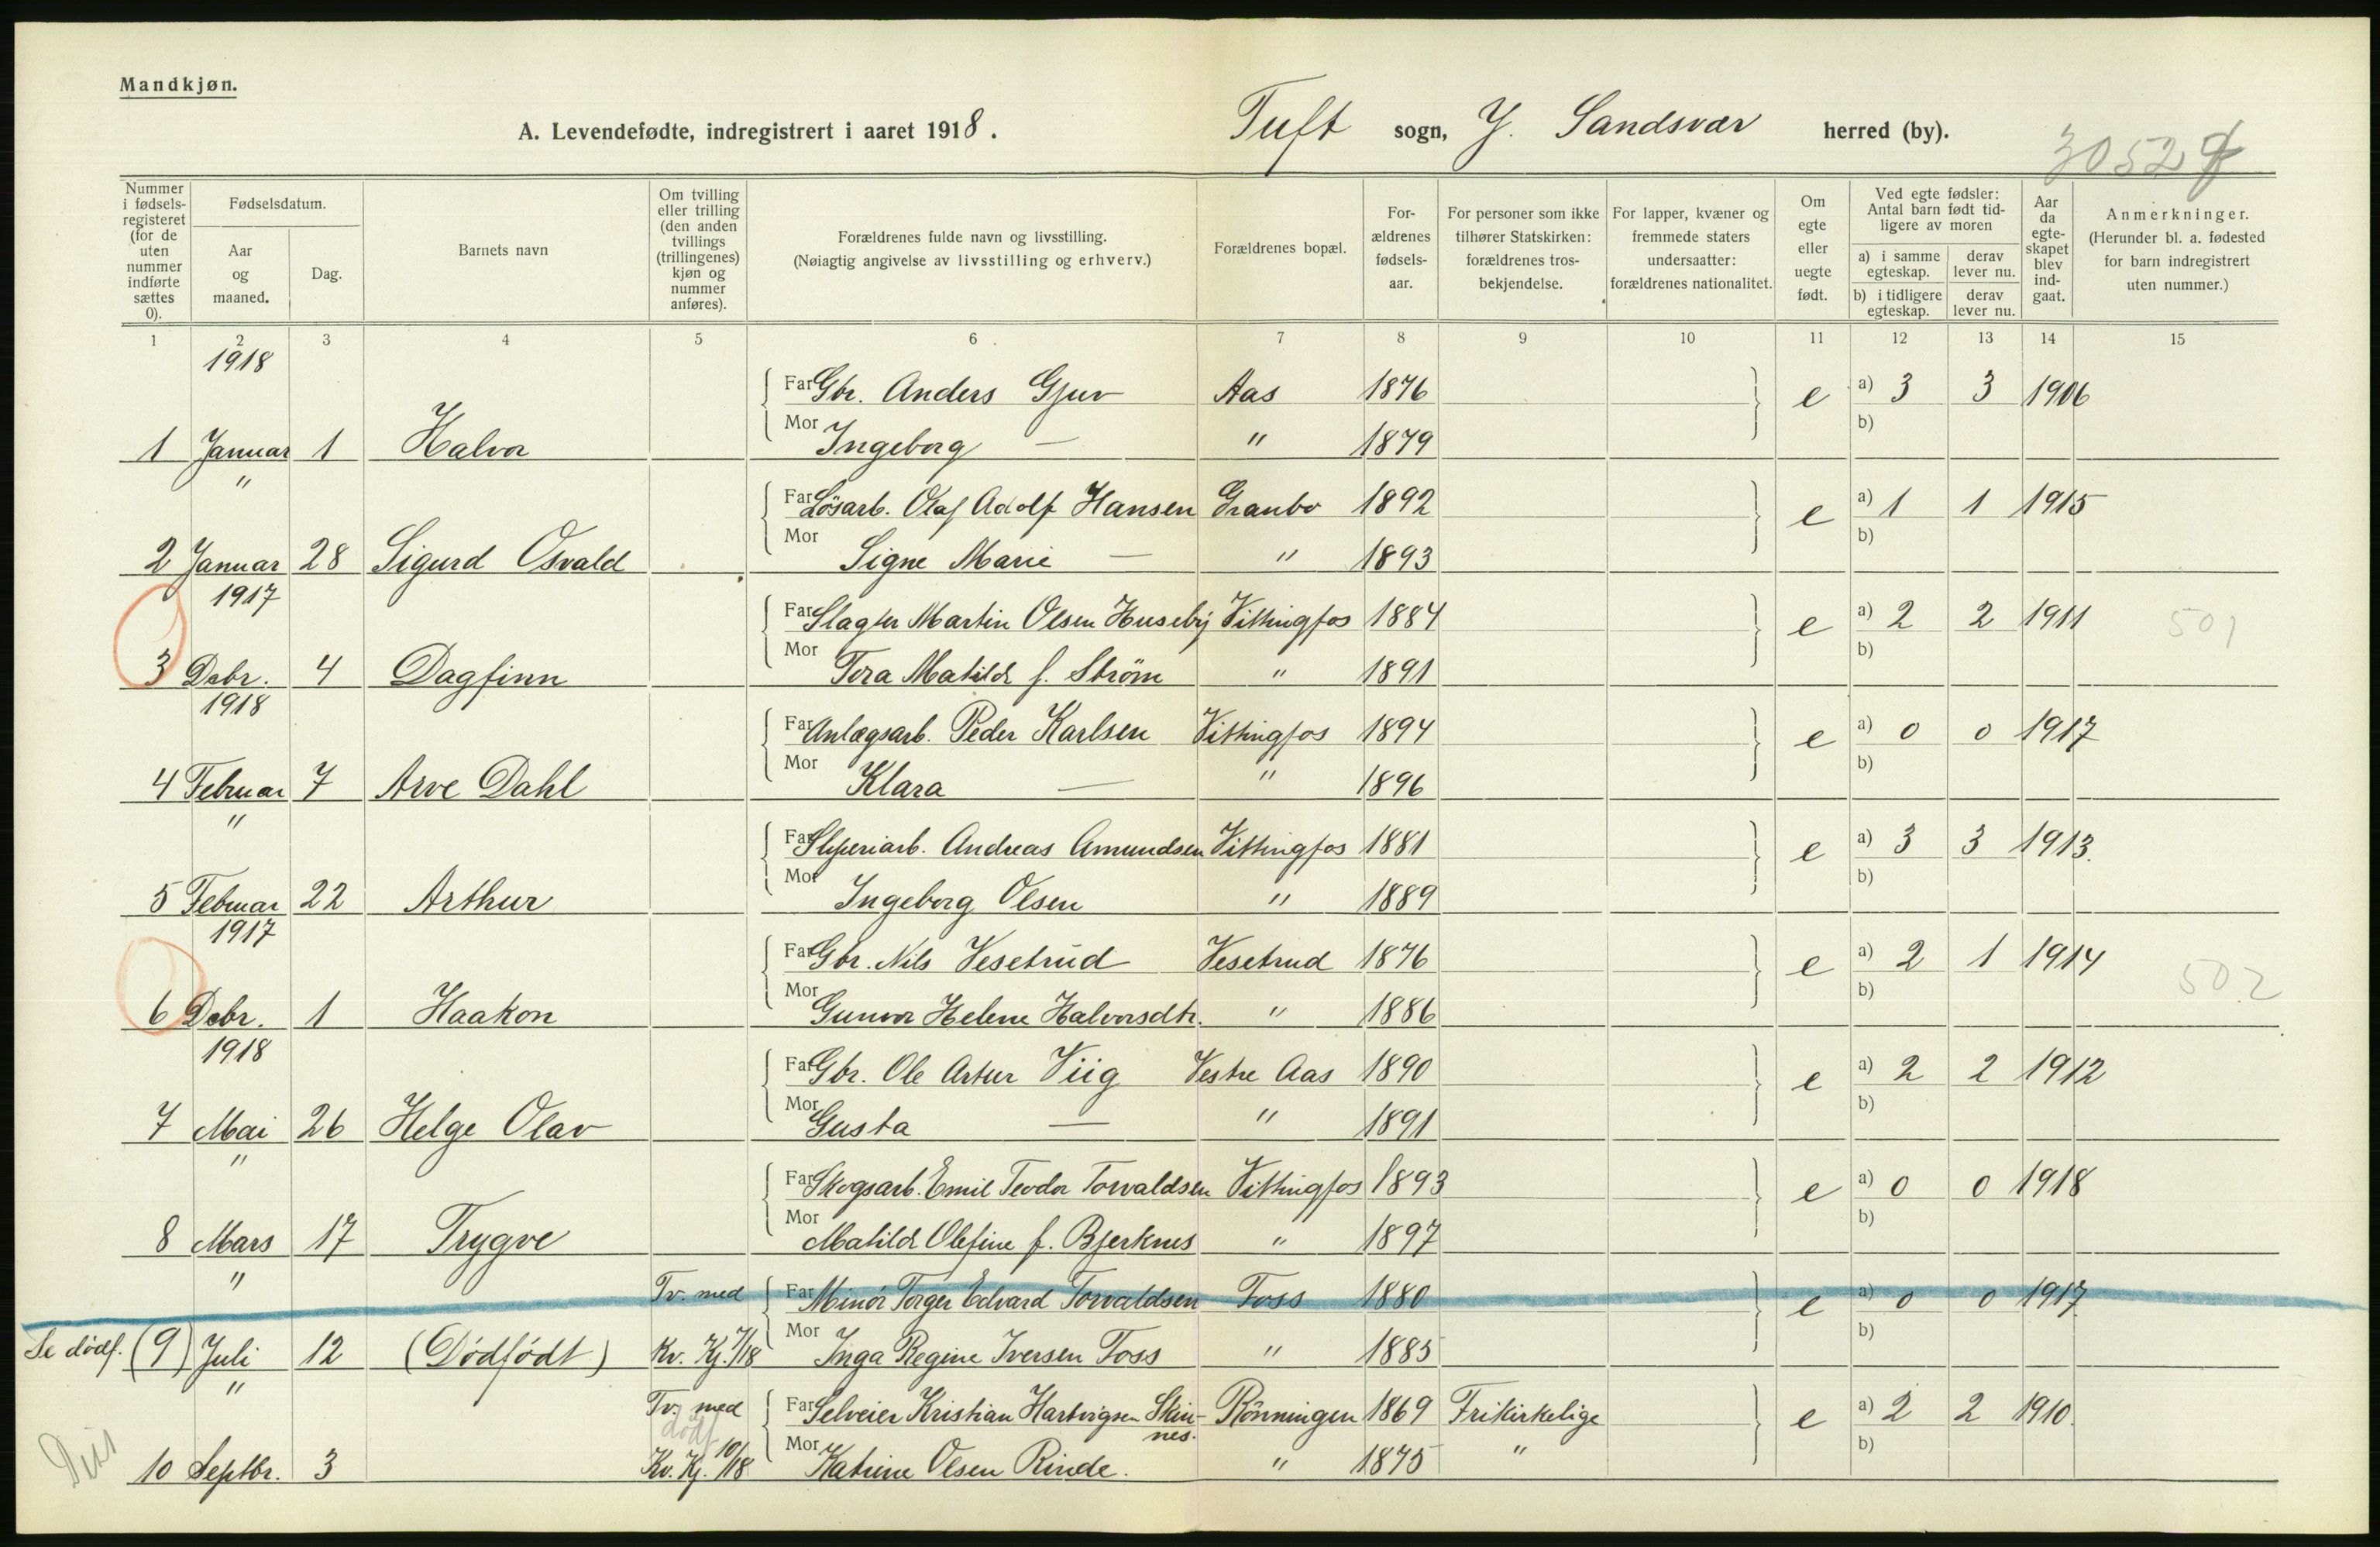 Mandkjøn.
A. Levendefødte, indregistrert i aaret 1918.
Tuft sogn, Y. Sandsvær herred (by).
3052
Nummer i fødsels-registeret (for de uten nummer indførte sættes 0).
Fødselsdatum.
Aar og maaned.
Dag.
Barnets navn
Om tvilling eller trilling (den anden tvillings (trillingenes) kjøn og nummer anføres).
Forældrenes fulde navn og livsstilling.
(Nøiagtig angivelse av livsstilling og erhverv.)
Forældrenes bopæl.
For-ældrenes fødsels-aar.
For personer som ikke tilhører Statskirken: forældrenes tros-bekjendelse.
For lapper, kvæner og fremmede staters undersaatter: forældrenes nationalitet.
Om egte eller uegte født.
Ved egte fødsler: Antal barn født tid-ligere av moren
a) i samme egteskap.
derav lever nu.
b) i tidligere egteskap.
derav lever nu.
Aar da egte-skapet blev ind-gaat.
Anmerkninger.
(Herunder bl. a. fødested for barn indregistrert uten nummer.)
1 2 3 4 5 6 7 8 9 10 11 12 13 14 15
1918
Far Gbr. Anders Gjuv Aas 1876 e a) 3 3 1906
b)
1 Januar 1 Halvor Mor Ingeborg — " 1879
"
Far Løsarb. Olaf Adolf Hansen Granbo 1892 e a) 1 1 1915
b)
2 Januar 28 Sigurd Osvald Mor Signe Marie — " 1893
1917
Far Slagter Martin Olsen Huseby Vittingfos 1884 e a) 2 2 1911 501
b)
3 Debr. 4 Dagfinn Mor Tora Matilde f. Strøm " 1891
1918
Far Anlægsarb. Peder Karlsen Vittingfos 1894 e a) 0 0 1917
b)
4 Februar 7 Arve Dahl Mor Klara — " 1896
"
Far Sliperiarb. Andreas Amundsen Vittingfos 1881 e a) 3 3 1913.
b)
5 Februar 22 Arthur Mor Ingeborg Olsen " 1889
1917
Far Gbr. Nils Vesetrud Vesetrud 1876 e a) 2 1 1914 502
b)
6 Debr. 1 Haakon Mor Gunvor Helene Halvorsdtr. " 1886
1918
Far Gbr. Ole Artur Viig Vestre Aas 1890 e a) 2 2 1912
b)
7 Mai 26 Helge Olav Mor Gusta — " 1891
"
Far Skogsarb. Emil Teodor Torvaldsen Vittingfos 1893 e a) 0 0 1918
b)
8 Mars 17 Trygve Mor Matilde Olefine f. Bjerknes " 1897
"
Tv. med Far Minör Torger Edvard Torvaldsen Foss 1880 e a) 0 0 1917
b)
Se dødf. (9) Juli 12 (Dødfødt) Kv. Kj. 7/18 Mor Inga Regine Iversen Foss " 1885
"
Tv. med Far Selveier Kristian Hartvigsen Skin-nes. Rönningen 1869 Frikirkelige e a) 2 2 1910.
dødf
b)
10 Septbr. 3 Kv. Kj. 10/18 Mor Katrine Olsen Rinde. " 1875 "